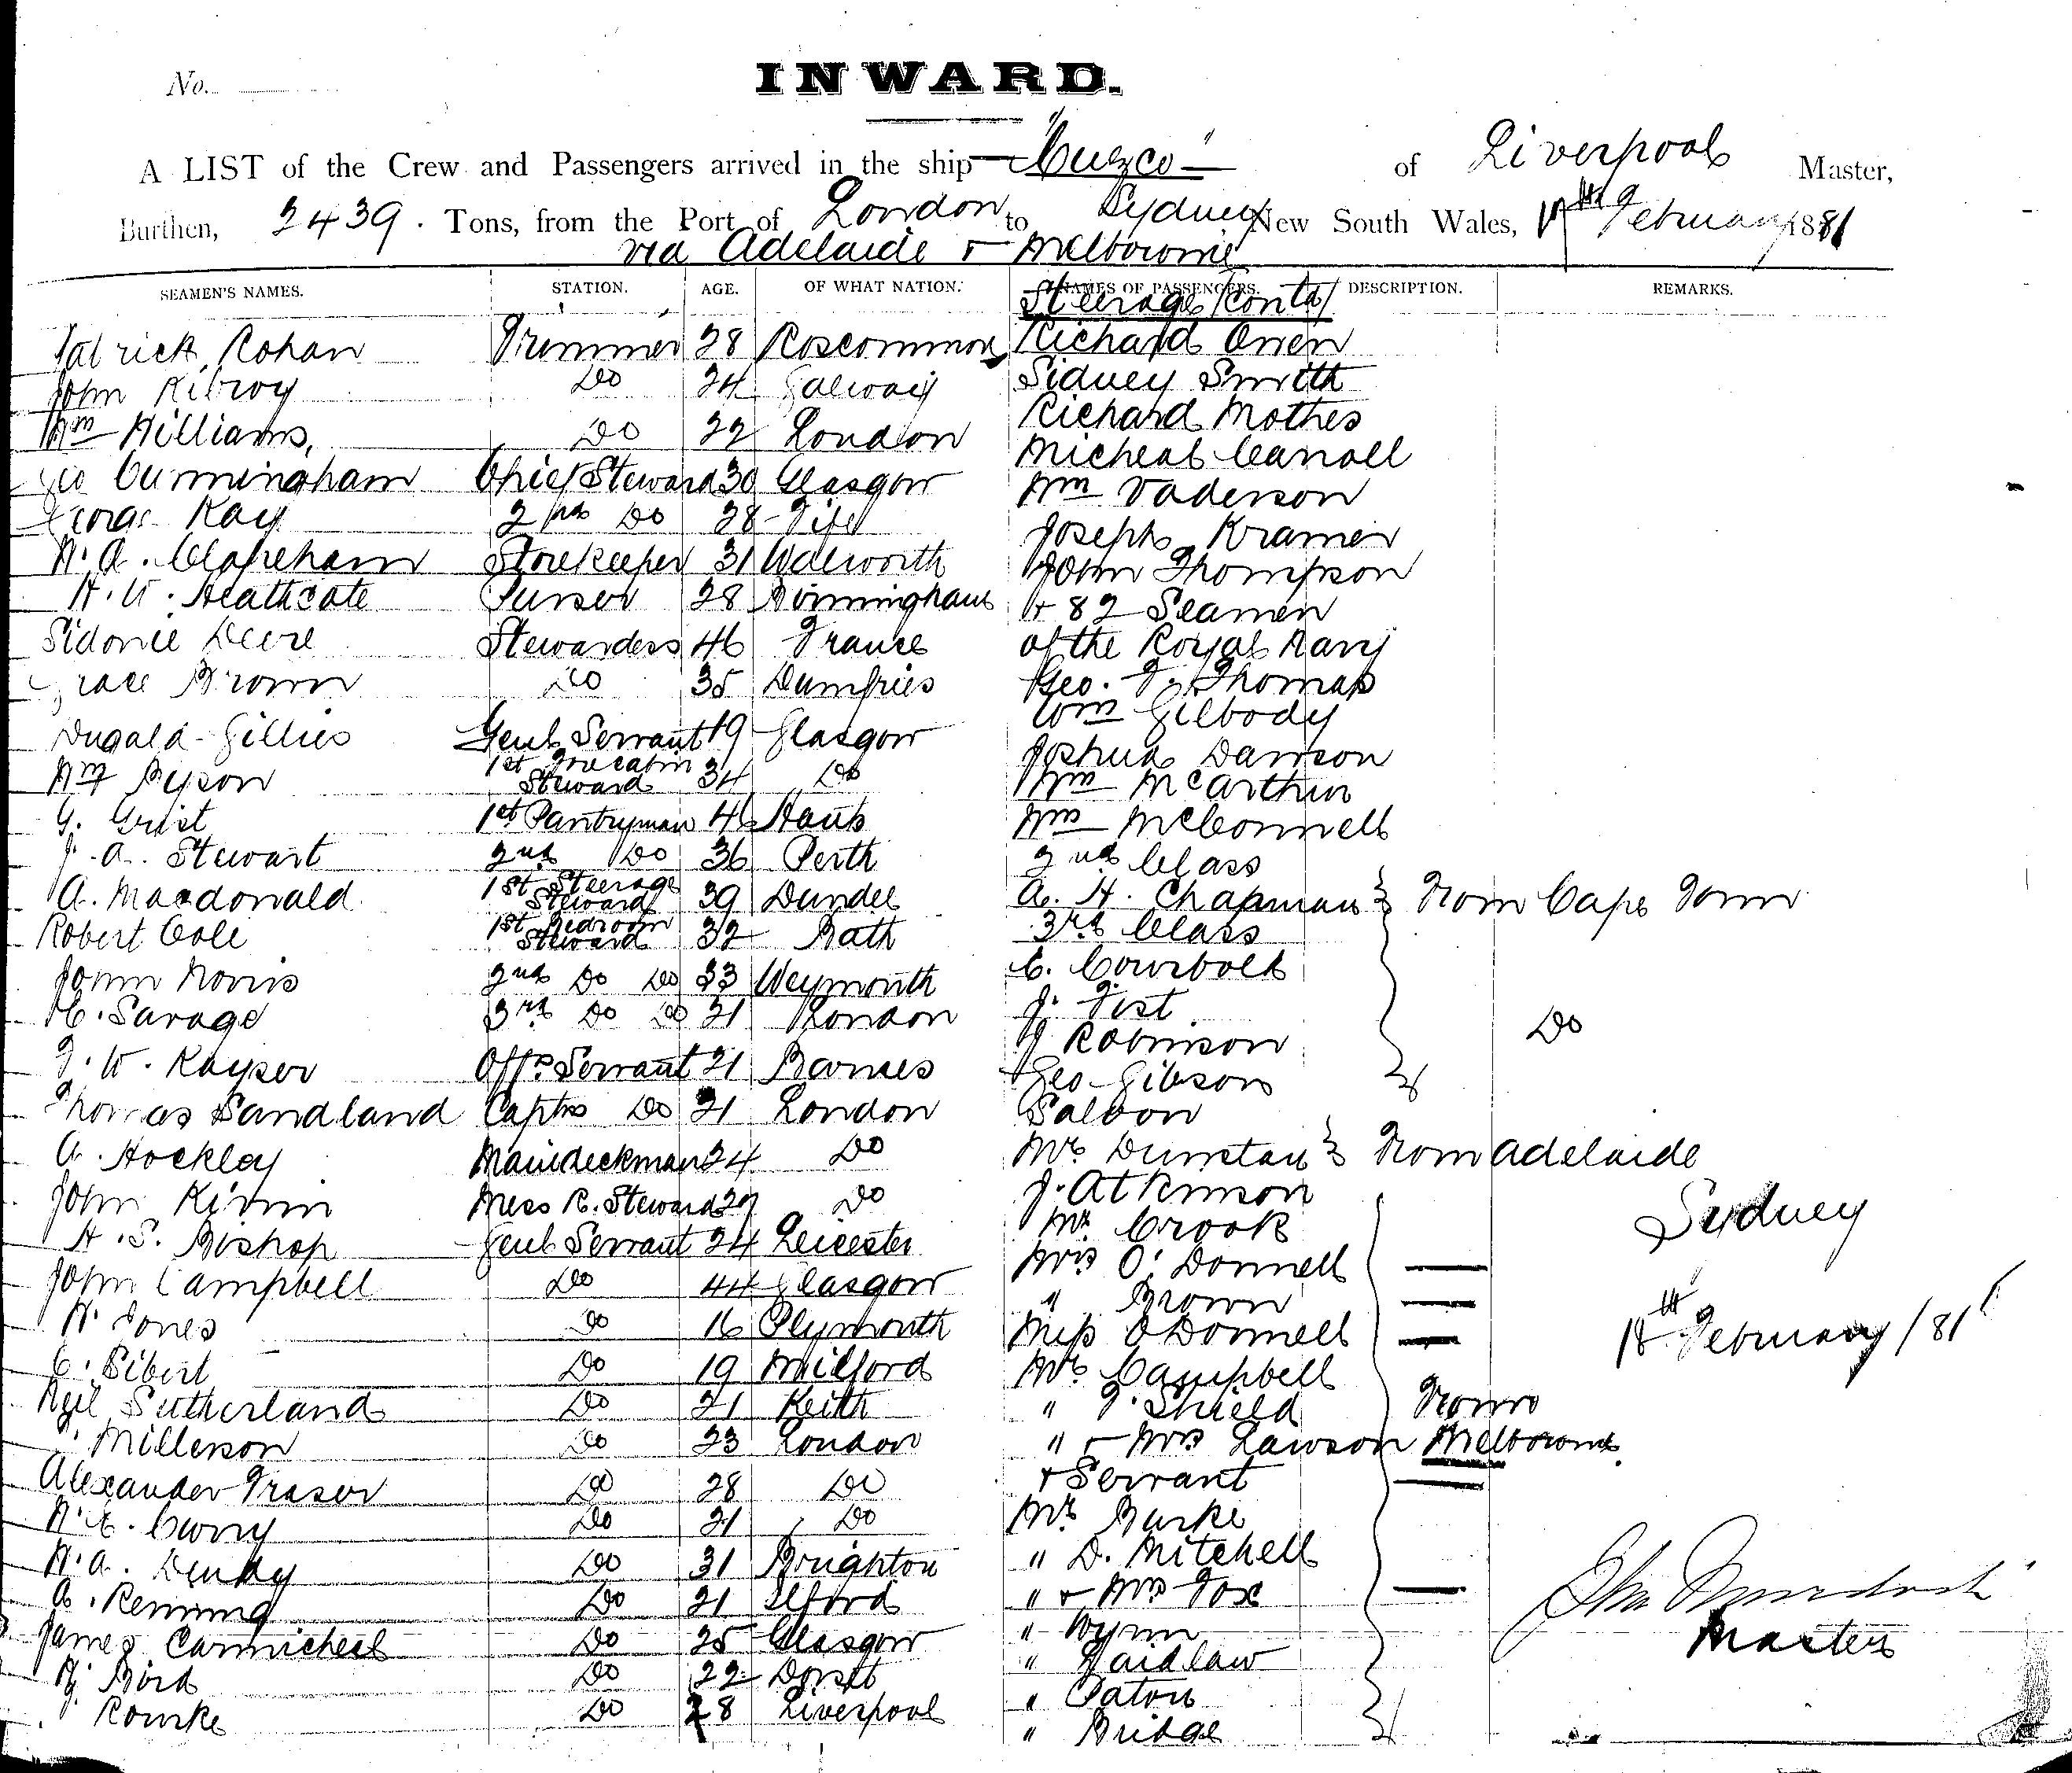 No.
INWARD.
A LIST of the Crew and Passengers arrived in the ship "Cuzco" of Liverpool Master,
Burthen, 2439. Tons, from the Port of London to Sydney New South Wales, February 1881
via Adelaide & Melbourne
SEAMEN'S NAMES. STATION. AGE. OF WHAT NATION. NAMES OF PASSENGERS. DESCRIPTION. REMARKS.
Steerage (Contd)
Patrick Rohan Trimmer 28 Roscommon Richard Owen
John Kilroy Do 24 Galway Sidney Smith
Wm Williams, Do 22 London Richard Mothes
Geo Cunningham Chief Steward 30 Glasgow Micheal Carroll
George Kay 2nd Do 28 Fife Wm Vaderson
H. A. Clapeham Storekeeper 31 Walworth Joseph Kramer
H. W. Heathcote Purser 28 Birmingham John Thompson
Sidonie Deere Stewardess 46 France & 82 Seamen
Grace Brown Do 35 Dumfries of the Royal Navy
Geo. F. Thomas
Dugald Gillies Genl Servant 19 Glasgow Wm Gilbody
Wm Pyson 1st Fore Cabin Steward 34 Do Joshua Dawson
G. Grist 1st Pantryman 46 Hants Wm McArthur
J. A. Stewart 2nd Do 36 Perth Wm McConnell
2nd Class
A. Macdonald 1st Steerage Steward 39 Dundee A. H. Chapman } From Cape Town
Robert Cole 1st Bedroom Steward 32 Bath 3rd Class
John Norris 2nd Do Do 33 Weymouth C. Courbold
C. Savage 3rd Do Do 21 London J. Fist
J Robinson Do
F. W. Kayser Offrs Servant 21 Barnes Geo Gibson
Thomas Sandland Capts Do 21 London Saloon
A. Hockley Maindeckman 24 Do Mr Dunstan } From Adelaide
John Kirwin Mess R. Steward 27 Do J. Atkinson
H. S. Bishop Genl Servant 24 Leicester Mr Crook
Sydney
John Campbell Do 44 Glasgow Mrs O'Donnell
H. Jones Do 16 Plymouth " Brown
C. Sibert Do 19 Milford Miss O'Donnell
18th February /81
Neil Sutherland Do 21 Keith Mr Campbell
Millerson Do 23 London " F. Shield From
Alexander Fraser Do 28 Do " & Mrs Lawson Melbourne
& Servant
H. E. Curry Do 21 Do Mr Burke
H. A. Dendy Do 31 Brighton " D. Mitchell
A. Remmg Do 21 Ilford " & Mrs Fox
James Carmicheal Do 25 Glasgow " Wynn
H. Bird Do 22 Dorset " Laidlaw
Rourke Do 28 Liverpool " Paton
" Bridge
Jno Murdoch
Master